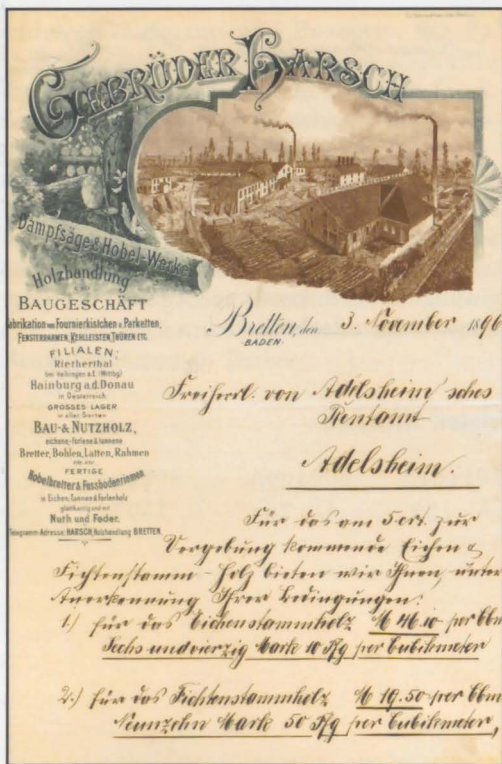 GEBRÜDER HARSCH
Dampfsäge & Hobel-Werke
Holzhandlung
BAUGESCHÄFT
Fabrikation von Fournierkistchen u. Parketten,
FENSTERRAHMEN, KEHLLEISTEN, THÜREN ETC.
FILIALEN:
Rietherthal
bei Vaihingen a.E. (Wttbg)
Hainburg a.d. Donau
in Oesterreich.
GROSSES LAGER
in allen Sorten
BAU- & NUTZHOLZ,
eichene, forlene & tannene
Bretter, Bohlen, Latten, Rahmen
FERTIGE
Hobelbretter & Fussbodenriemen
in Eichen, Tannen & Forlenholz
glattkantig und mit
Nuth und Feder.
Telegramm-Adresse: HARSCH, Holzhandlung BRETTEN.
Bretten, den 3. November 1896
BADEN.
Freiherrl. von Adelsheim'sches
Rentamt
Adelsheim.
Für das am 5 crt. zur
Vergebung kommende Eichen &
Fichtenstamm-Holz bieten wir Ihnen, unter
Anerkennung Ihrer Bedingungen:
1.) für das Eichenstammholz M 46.10 per Cbm
Sechs und vierzig Mark 10 Pfg per Cubikmeter
2.) für das Fichtenstammholz M 19.50 per Cbm
Neunzehn Mark 50 Pfg per Cubikmeter,